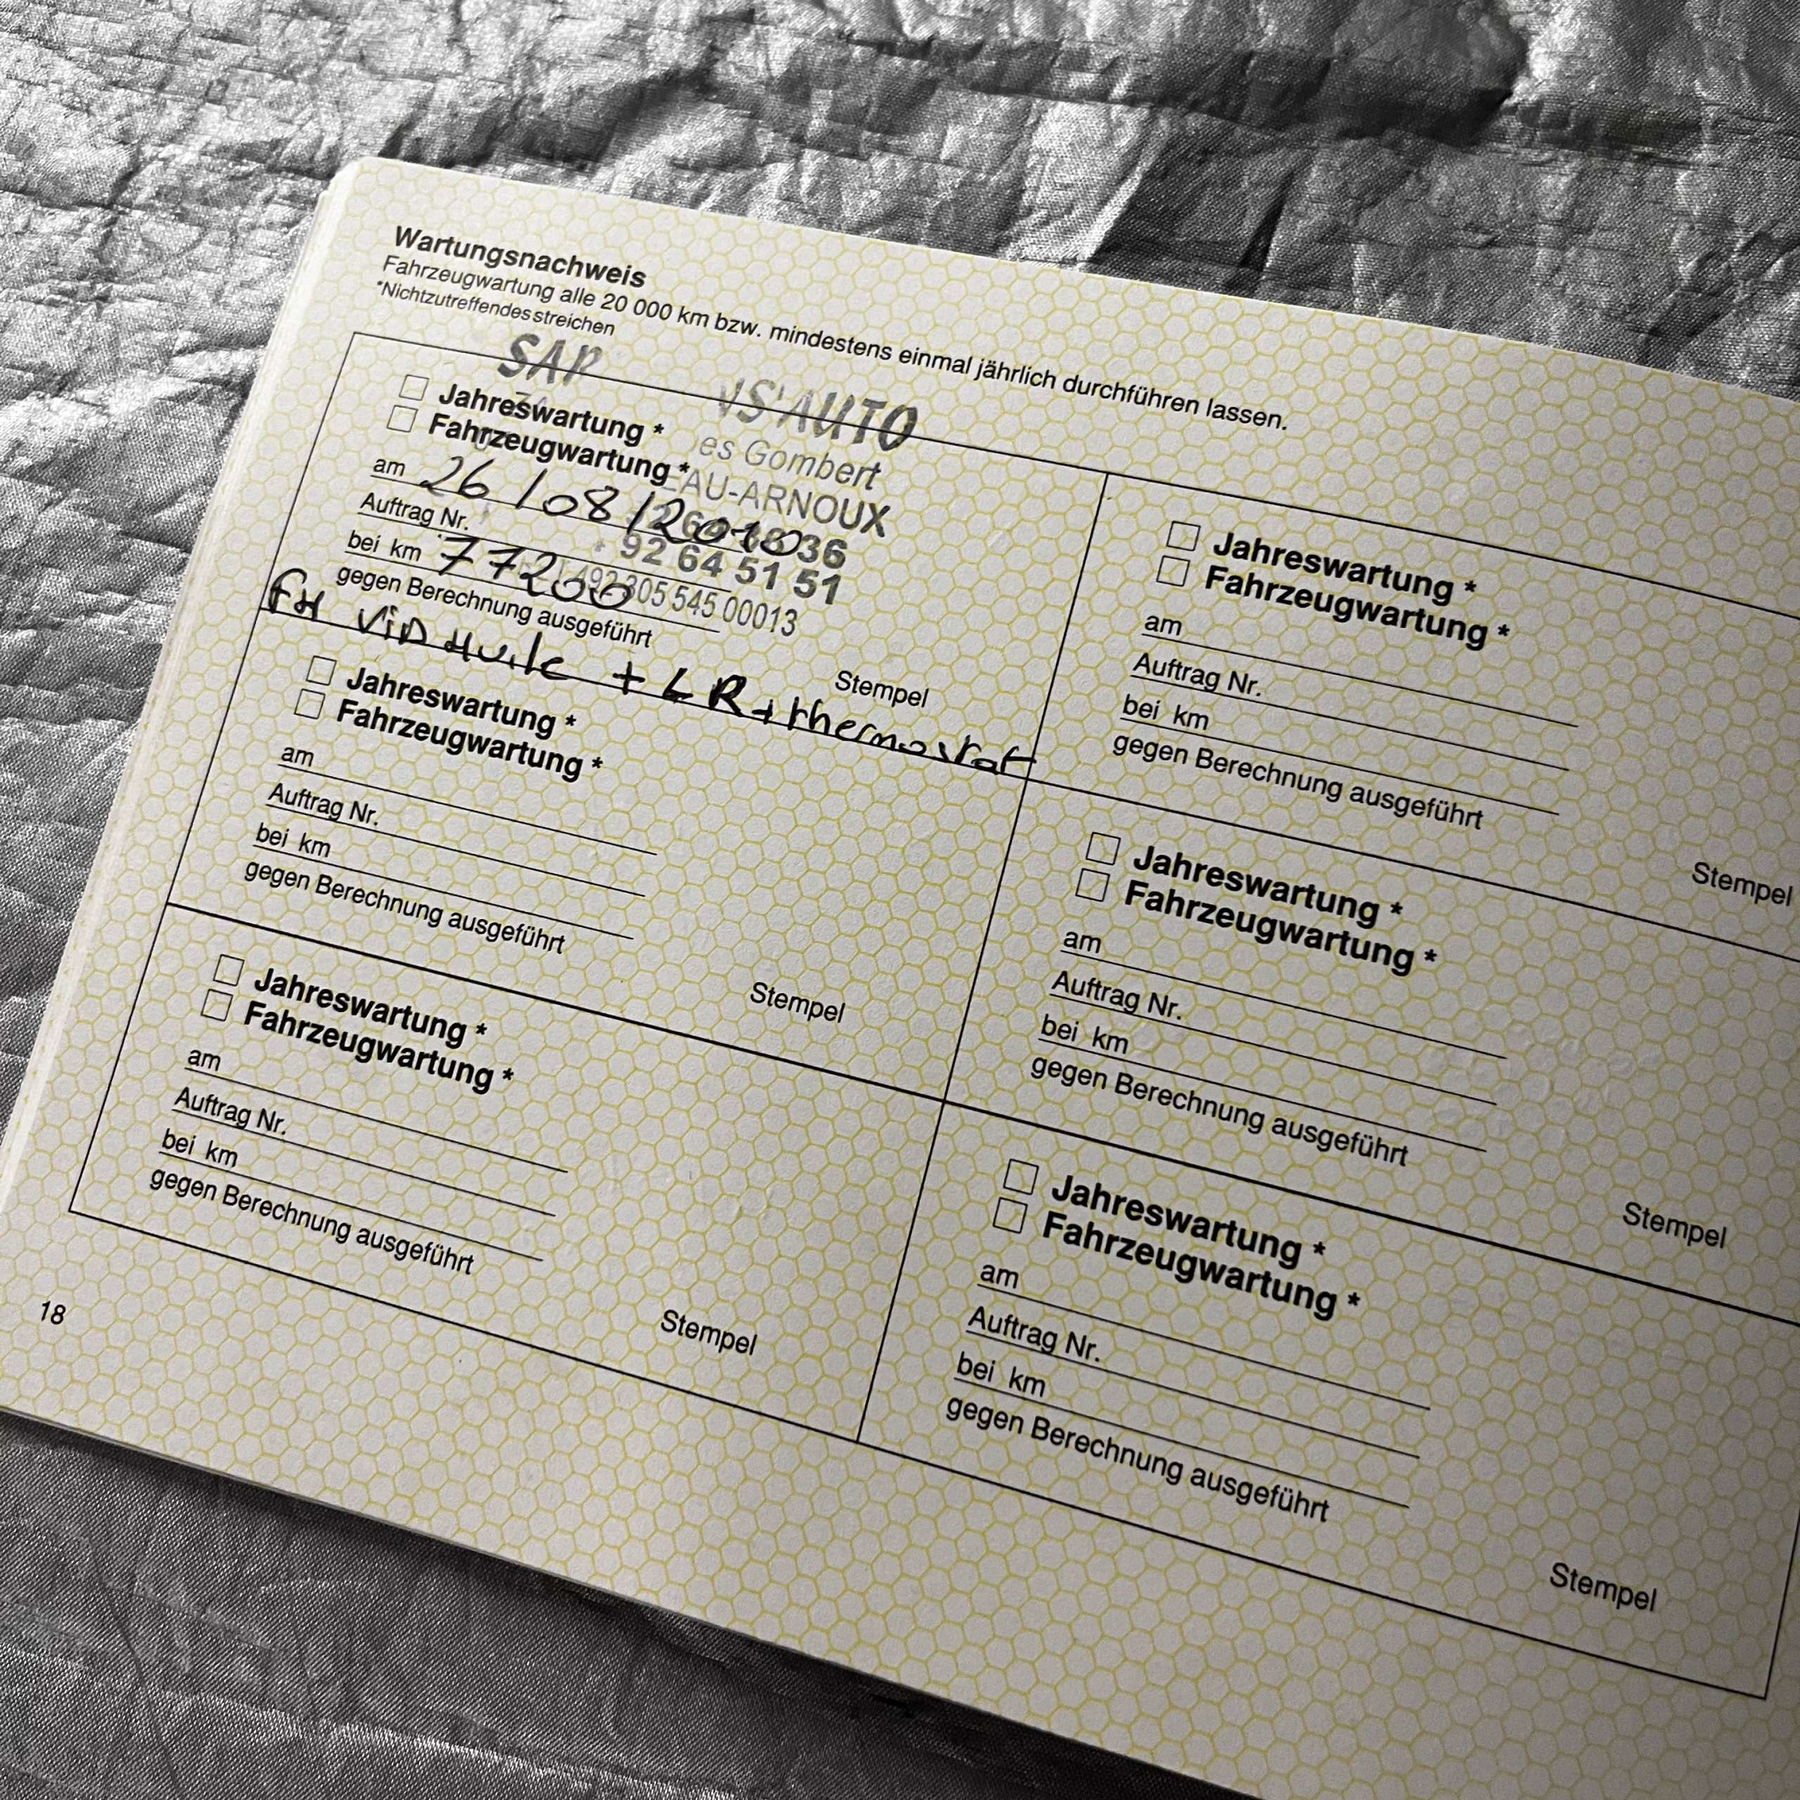 Wartungsnachweis
Fahrzeugwartung alle 20 000 km bzw. mindestens einmal jährlich durchführen lassen.
*Nichtzutreffendes streichen
VS'AUTO
es Gombert
AU-ARNOUX
36
92 64 51 51
492 305 545 00013
Jahreswartung *
Fahrzeugwartung *
am 26/08/2010
Auftrag Nr.
bei km 77200
gegen Berechnung ausgeführt
Stempel
huile + LR + thermostat
Jahreswartung *
Fahrzeugwartung *
am
Auftrag Nr.
bei km
gegen Berechnung ausgeführt
Stempel
Jahreswartung *
Fahrzeugwartung *
am
Auftrag Nr.
bei km
gegen Berechnung ausgeführt
Stempel
Jahreswartung *
Fahrzeugwartung *
am
Auftrag Nr.
bei km
gegen Berechnung ausgeführt
Stempel
Jahreswartung *
Fahrzeugwartung *
am
Auftrag Nr.
bei km
gegen Berechnung ausgeführt
Stempel
Jahreswartung *
Fahrzeugwartung *
am
Auftrag Nr.
bei km
gegen Berechnung ausgeführt
Stempel
18